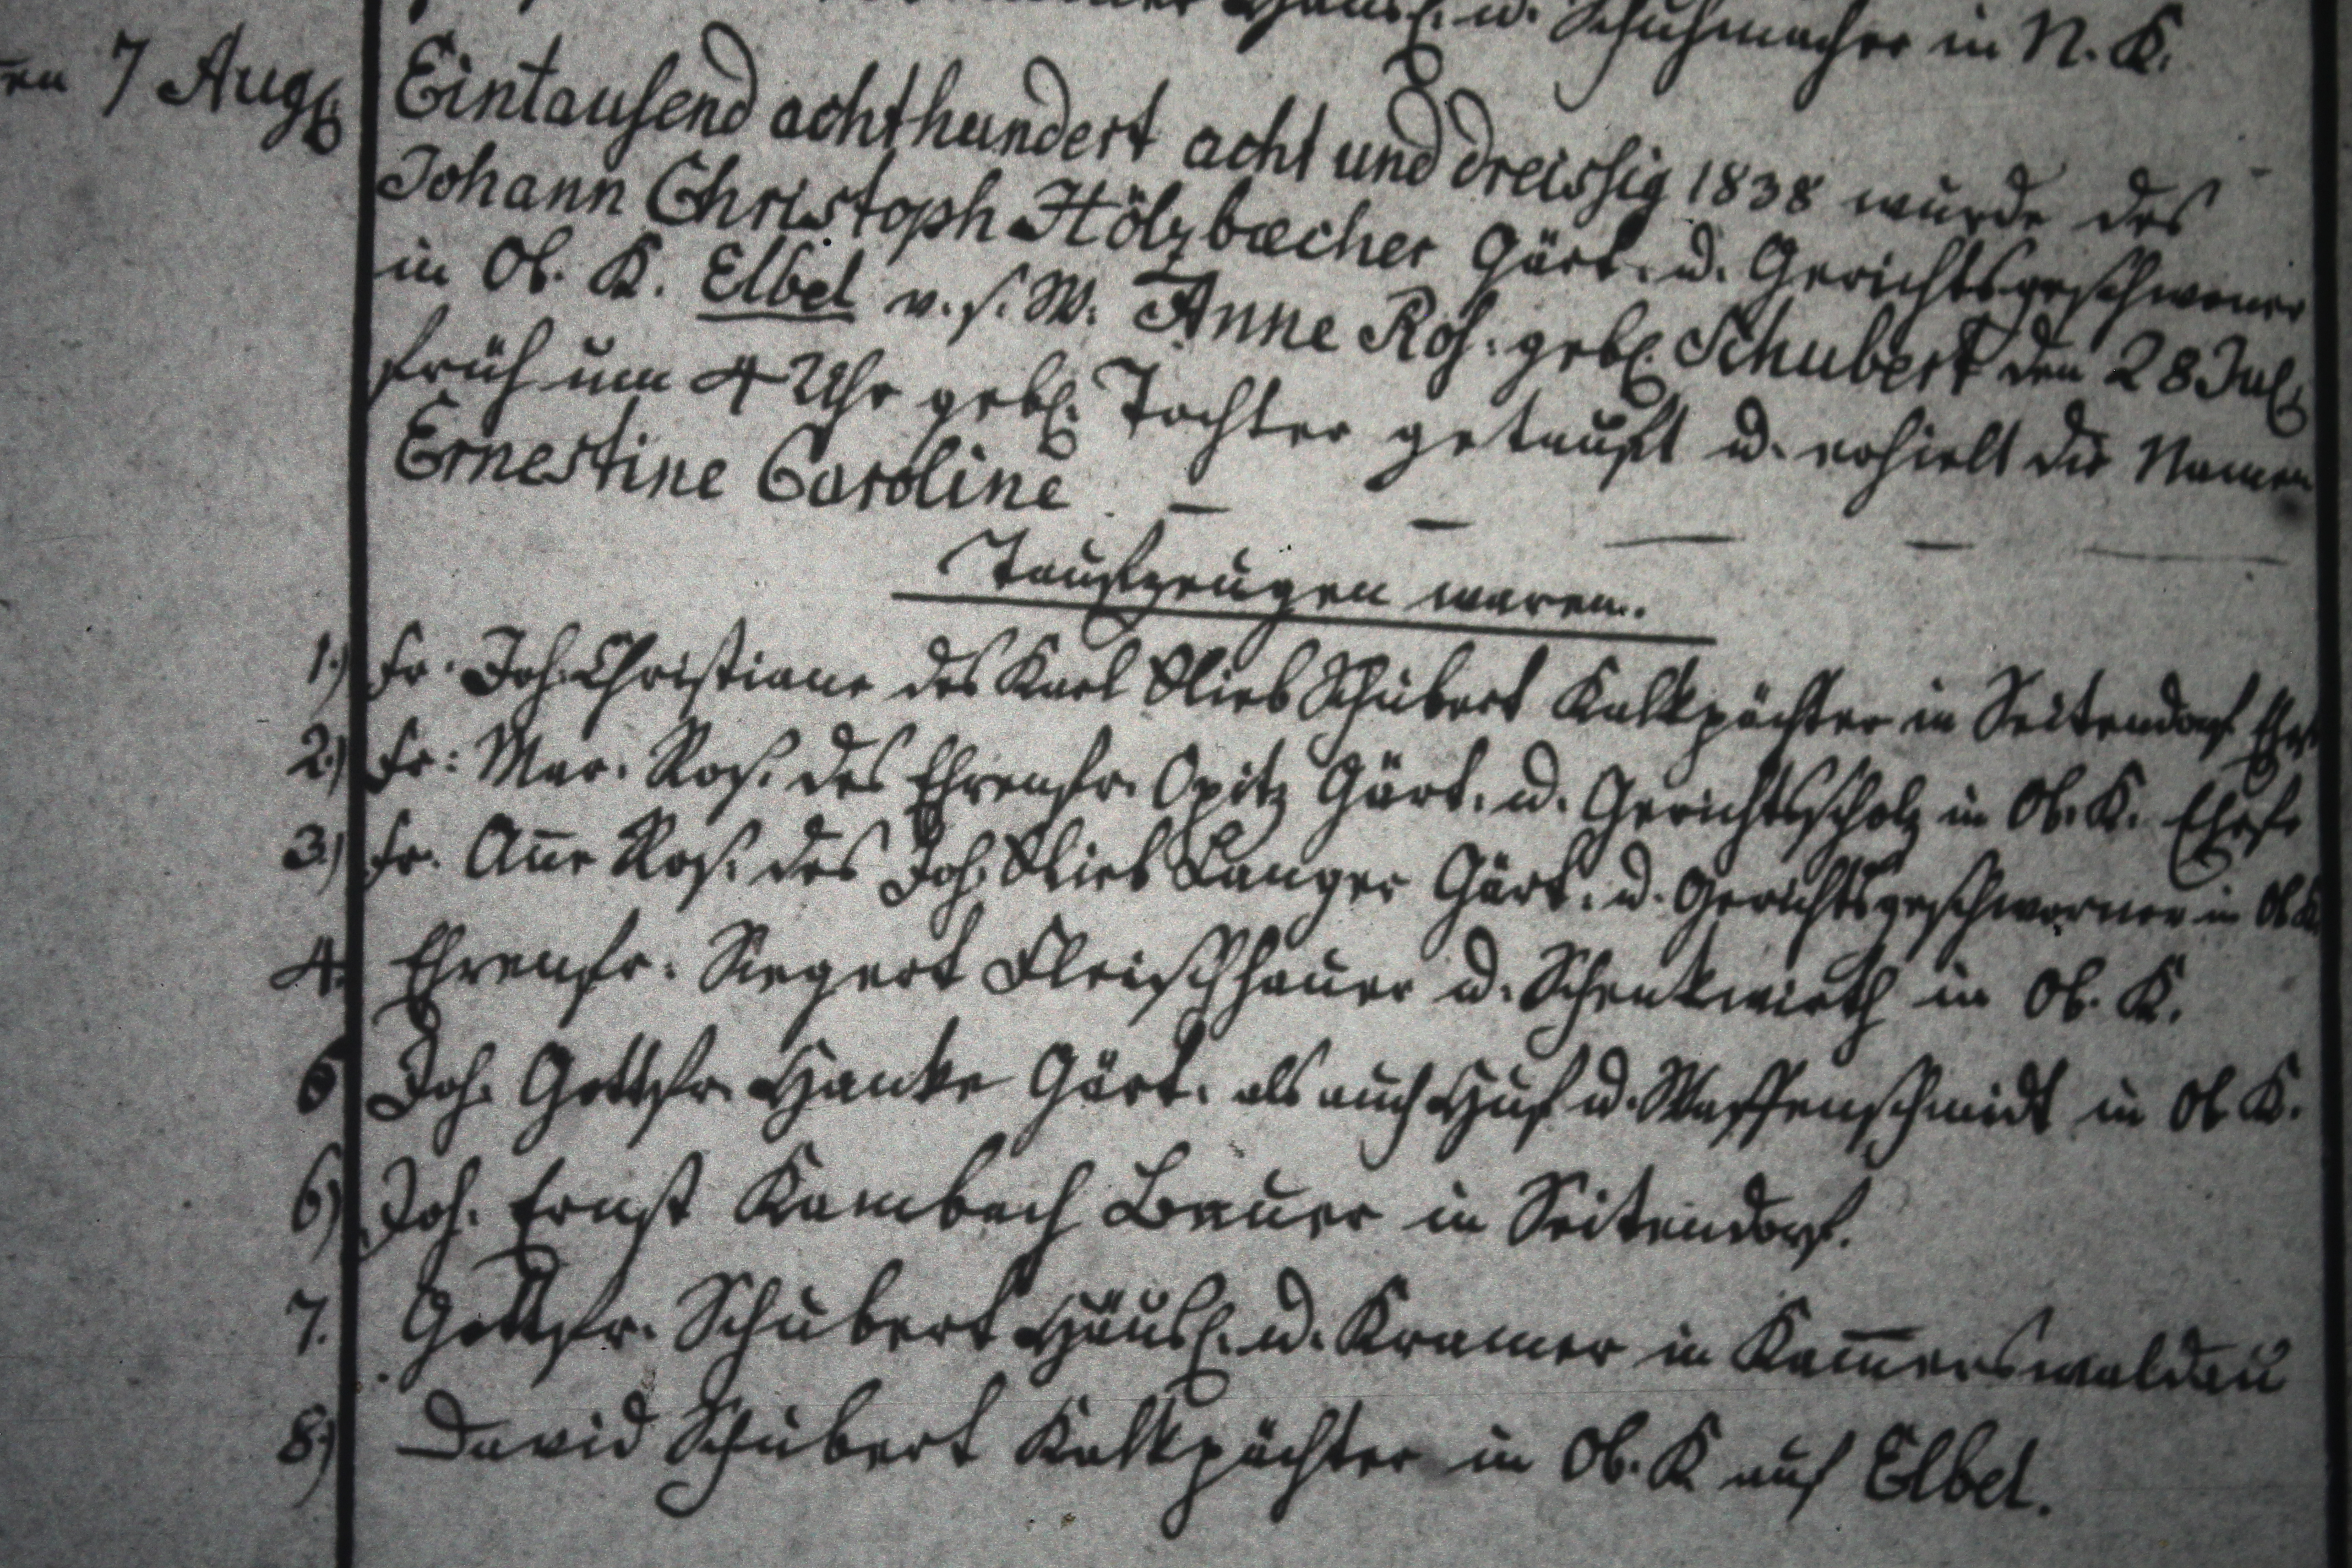 Häusl. u. Schuhmacher in N. K.
den 7 Aug
Eintausend achthundert acht und dreissig 1838 wurde des
Johann Christoph Hölzbecher Gärt. u. Gerichtsgeschworner
in Ob. K. Elbel v. s. W. Anne Ros. geb. Schubert den 28 Jul.
früh um 4 Uhr geb. Tochter getauft u. erhielt die Namen
Ernestine Caroline — — — — —
Taufzeugen waren.
1.) Fr. Joh. Christiane des Karl Glieb Schubert Kalkpächter in Seitendorf
2.) Fr: Mar. Ros. des Ehrenfr. Opitz Gärt. u. Gerichtsscholz in Ob. K. Ehefr
3.) Fr. Añe Ros. des Joh. Glieb Langer Gärt. u. Gerichtsgeschworner in Ob K
4. Ehrenfr. Siegert Fleischhauer u. Schenkwirth in Ob. K.
5 Joh. Gottfr. Hanke Gärt. als auch Huf u. Waffenschmidt in Ob K.
6) Joh. Ernst Kambach Bauer in Seitendorf.
7. Gottfr. Schubert Häusl. u. Kramer in Kam̄erswaldau
8) David Schubert Kalkpächter in Ob. K auf Elbel.